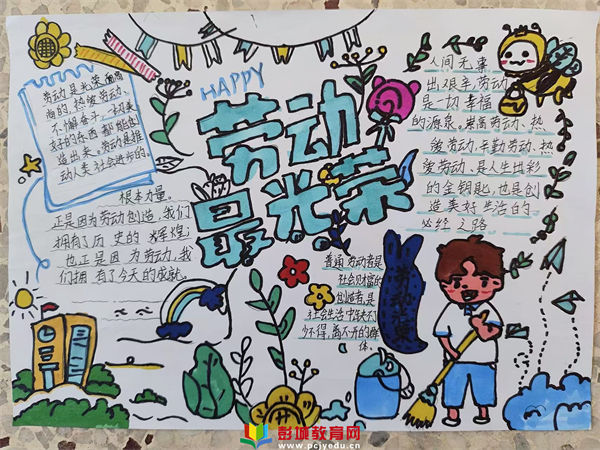 HAPPY
劳动
最光荣
劳动是光荣而高
尚的,热爱劳动、
不懈奋斗,一切美
好的东西都能创
造出来,劳动是推
动人类社会进步的
根本力量。
正是因为劳动创造,我们
拥有了历史的辉煌;
也正是因为劳动,我
们拥有了今天的成就。
人间无事
出艰辛,劳动
是一切幸福
的源泉。崇尚劳动、热
爱劳动、辛勤劳动、热
爱劳动、是人生出彩
的金钥匙,也是创
造美好生活的
必经之路
普通劳动者是
社会财富的
创造者,是
社会生活中缺不
少不得,离不开的群
体。
彭城教育网
www.pcjyedu.cn